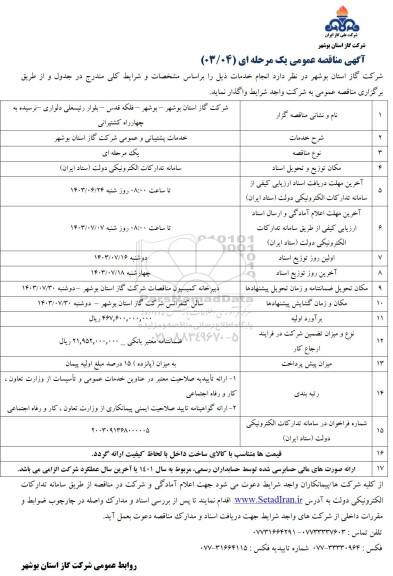 شرکت ملی گاز ایران
شرکت گاز استان بوشهر
آگهی مناقصه عمومی یک مرحله ای (۰۳/۰۴)
شرکت گاز استان بوشهر در نظر دارد انجام خدمات ذیل را براساس مشخصات و شرایط کلی مندرج در جدول و از طریق
برگزاری مناقصه عمومی به شرکت واجد شرایط واگذار نماید.
۱ نام و نشانی مناقصه گزار شرکت گاز استان بوشهر – بوشهر – فلکه قدس – بلوار رئیسعلی دلواری –نرسیده به
چهارراه کشتیرانی
۲ شرح خدمات خدمات پشتیبانی و عمومی شرکت گاز استان بوشهر
۳ نوع مناقصه یک مرحله ای
۴ مکان توزیع و تحویل اسناد سامانه تدارکات الکترونیکی دولت (ستاد ایران)
۵ آخرین مهلت دریافت اسناد ارزیابی کیفی از
سامانه تدارکات الکترونیکی دولت (ستاد ایران)
تا ساعت ۰۸:۰۰ روز شنبه ۱۴۰۳/۰۶/۲۴
۶ آخرین مهلت اعلام آمادگی و ارسال اسناد
ارزیابی کیفی از طریق سامانه تدارکات
الکترونیکی دولت (ستاد ایران)
تا ساعت ۰۸:۰۰ روز شنبه ۱۴۰۳/۰۷/۰۷
۷ اولین روز توزیع اسناد دوشنبه ۱۴۰۳/۰۷/۱۶
۸ آخرین روز توزیع اسناد چهارشنبه ۱۴۰۳/۰۷/۱۸
۹ مکان تحویل ضمانتنامه و زمان تحویل پیشنهادها دبیرخانه کمیسیون مناقصات شرکت گاز استان بوشهر –دوشنبه ۱۴۰۳/۰۷/۳۰
۱۰ مکان و زمان گشایش پیشنهادها سالن کنفرانس شرکت گاز استان بوشهر – دوشنبه ۱۴۰۳/۰۷/۳۰
۱۱ برآورد اولیه ۴۶۷,۶۰۰,۰۰۰,۰۰۰ ریال
۱۲ نوع و میزان تضمین شرکت در فرایند
ارجاع کار
ضمانتنامه معتبر بانکی _ ۲۱,۹۵۲,۰۰۰,۰۰۰ ریال
۱۳ میزان پیش پرداخت به میزان (پانزده ) ۱۵ درصد مبلغ اولیه پیمان
۱۴ رتبه بندی ۱- ارائه تأییدیه صلاحیت معتبر در عناوین خدمات عمومی و تأسیسات از وزارت تعاون ،
کار و رفاه اجتماعی
۲- ارائه گواهینامه تایید صلاحیت ایمنی پیمانکاری از وزارت تعاون ، کار و رفاه اجتماعی
۱۵ شماره فراخوان در سامانه تدارکات الکترونیکی
دولت (ستاد ایران)
۲۰۰۳۰۹۱۳۶۸۰۰۰۰۰۵
۱۶ قیمت ها متناسب با کالای ساخت داخل با لحاظ کیفیت ارائه گردد.
۱۷ ارائه صورت های مالی حسابرسی شده توسط حسابداران رسمی، مربوط به سال ۱۴۰۱ یا آخرین سال عملکرد شرکت الزامی می باشد.
از کلیه شرکت ها/پیمانکاران واجد شرایط دعوت می شود جهت اعلام آمادگی و شرکت در مناقصه از طریق سامانه تدارکات
الکترونیکی دولت به آدرس www.SetadIran.ir اقدام نمایند تا پس از بررسی اسناد و مدارک واصله در چارچوب ضوابط و
مقررات داخلی از شرکت های واجد شرایط جهت دریافت اسناد و مدارک مناقصه دعوت بعمل آید.
تلفن تماس : ۰۷۷۳۳۳۳۷۶۰۳- ۰۷۷۳۱۶۶۴۲۹۱
شماره فکس : ۳۳۳۳۰۹۶۴-۰۷۷ شماره تاییدیه فکس : ۳۱۶۶۴۱۱۵-۰۷۷
روابط عمومی شرکت گاز استان بوشهر